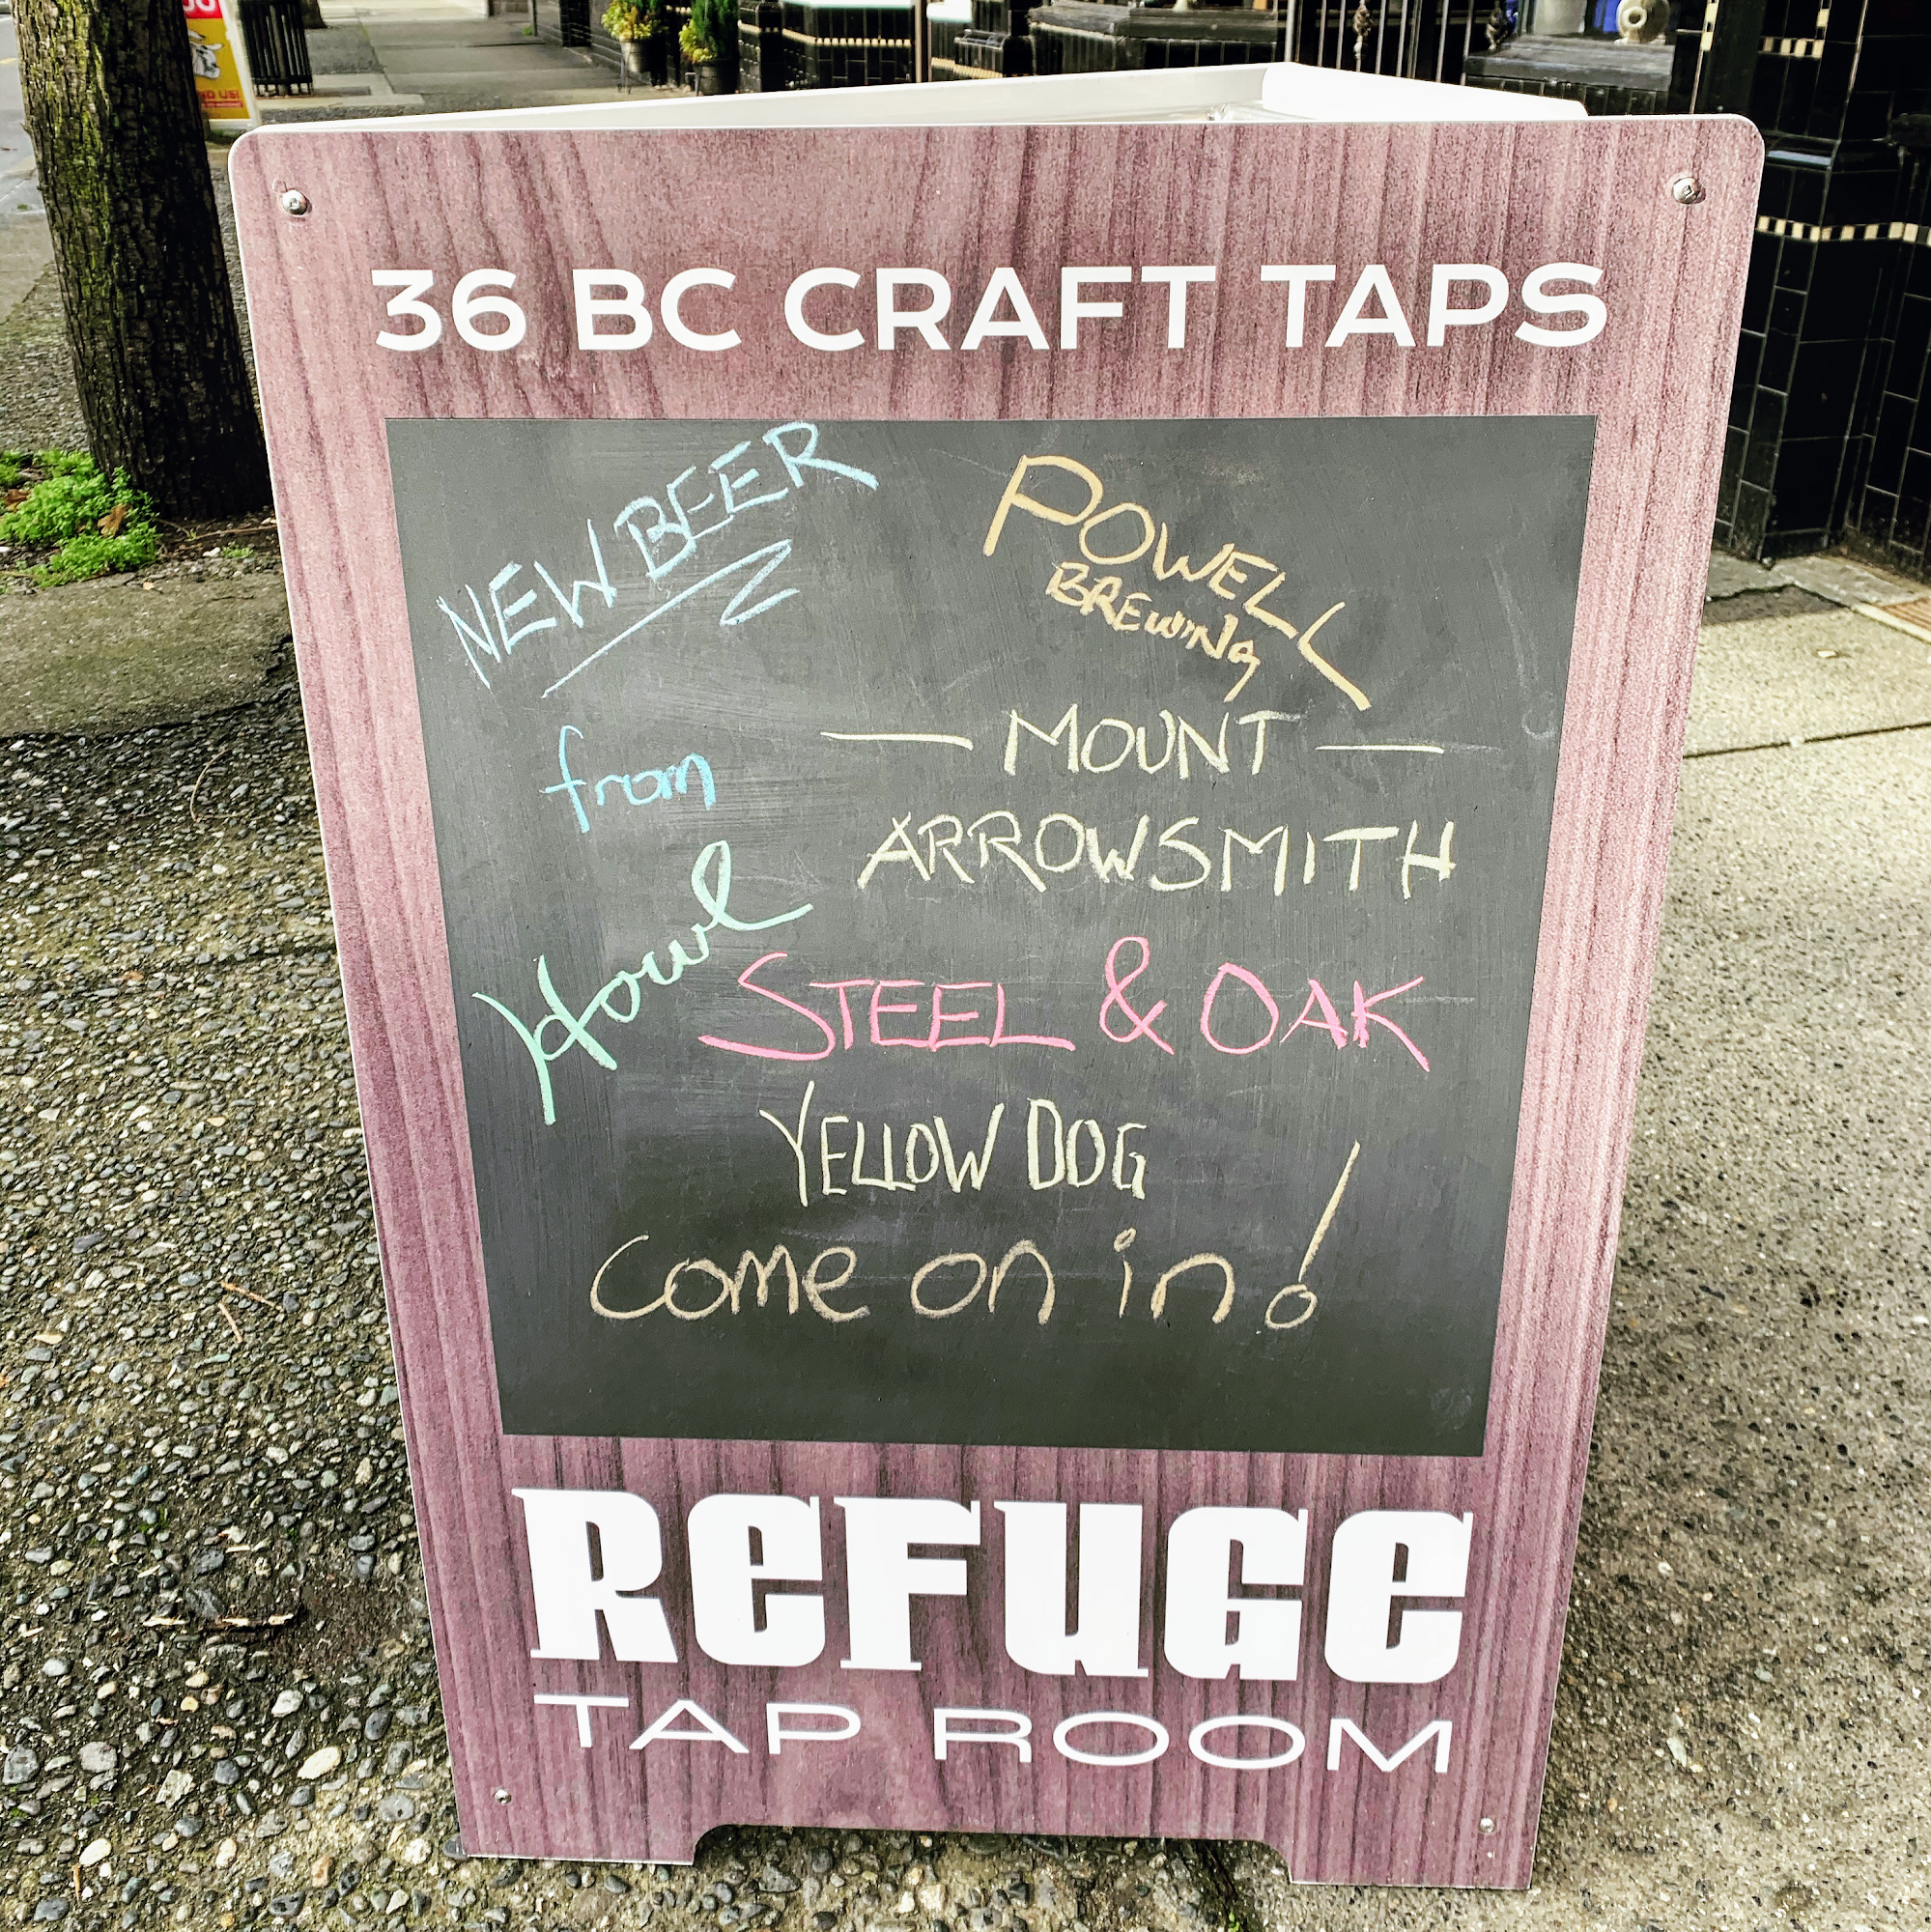 36 BC CRAFT TAPS
NEW BEER
from
Howl
POWELL
BREWING
— MOUNT —
ARROWSMITH
STEEL & OAK
YELLOW DOG
come on in!
REFUGE
TAP ROOM